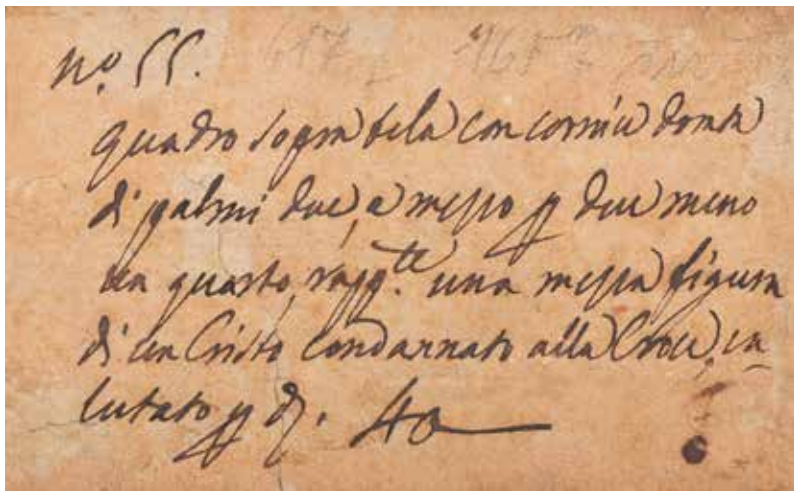 nº 55.
quadro sopra tela con cornice dorata
di palmi due, e mezzo p due meno
un quarto, rappte una mezza figura
di un Cristo condannato alla Croce, va
lutato p d. 40